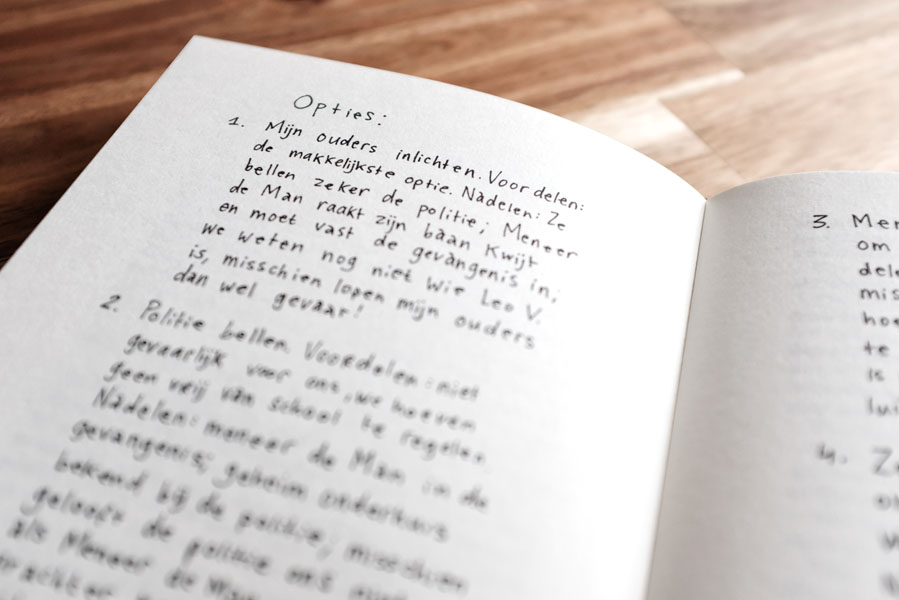 Opties:
1. Mijn ouders inlichten. Voordelen:
de makkelijkste optie. Nadelen: Ze
bellen zeker de politie; Meneer
de Man raakt zijn baan kwijt
en moet vast de gevangenis in;
we weten nog niet wie Leo V.
is, misschien lopen mijn ouders
dan wel gevaar!
2. Politie bellen. Voordelen: niet
gevaarlijk voor ons, we hoeven
geen vrij van school te regelen.
Nadelen: meneer de Man in de
gevangenis; geheim onderhuis
bekend bij de politie; misschien
gelooft de politie ons
als Meneer de
3. Mer
om
del
mis
hoe
te
is
lui
4. Ze